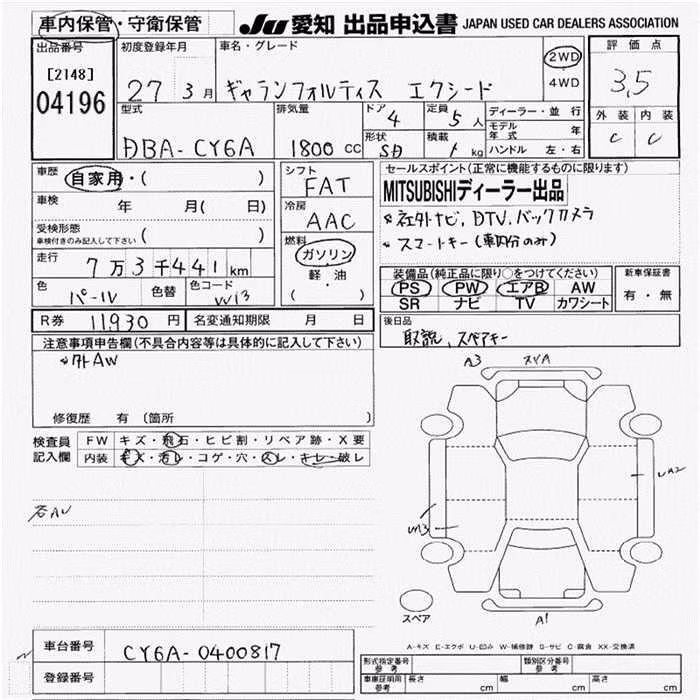 車内保管・守衛保管 JU 愛知 出品申込書 JAPAN USED CAR DEALERS ASSOCIATION
出品番号 初度登録年月 車名・グレード 評価点
[2148] 04196 27 3月 ギャランフォルティス エクシード 2WD 4WD 3,5
外装 内装
C C
型式 排気量 ドア 4 定員 5人 ディーラー・並行
モデル年式 年
DBA-CY6A 1800 CC 形状 SD 積載 kg ハンドル 左・右
車歴 自家用・( ) シフト FAT セールスポイント(正常に機能するものに限ります)
車検 年 月( 日) 冷房 AAC MITSUBISHIディーラー出品
受検形態 ( )
車検付きのみ記入して下さい
社外ナビ, DTV, バックカメラ
スマートキー(車内分のみ)
走行 7万3千441km 燃料 ガソリン 軽油 ( )
色 パール 色替 色コード W13
装備品(純正品に限り○をつけてください) 新車保証書
PS PW エアB AW 有・無
SR ナビ TV カワシート
R券 11,930 円 名変通知期限 月 日
後日品
取説, スペアキー
注意事項申告欄(不具合内容等は具体的に記入して下さい)
外AW
修復歴 有 (箇所 )
検査員記入欄 FW キズ・飛石・ヒビ割・リペア跡・X要
内装 キズ・汚レ・コゲ・穴・スレ・キレ・破レ
A3
UA2
A1
スペア
A-キズ E-エクボ U-凹み W-補修跡 S-サビ C-腐食 XX-交換済
車台番号 CY6A-0400817
登録番号
形式指定番号 参考 類別区分番号 参考
車庫証明用 参考 長さ cm 幅 cm 高さ cm